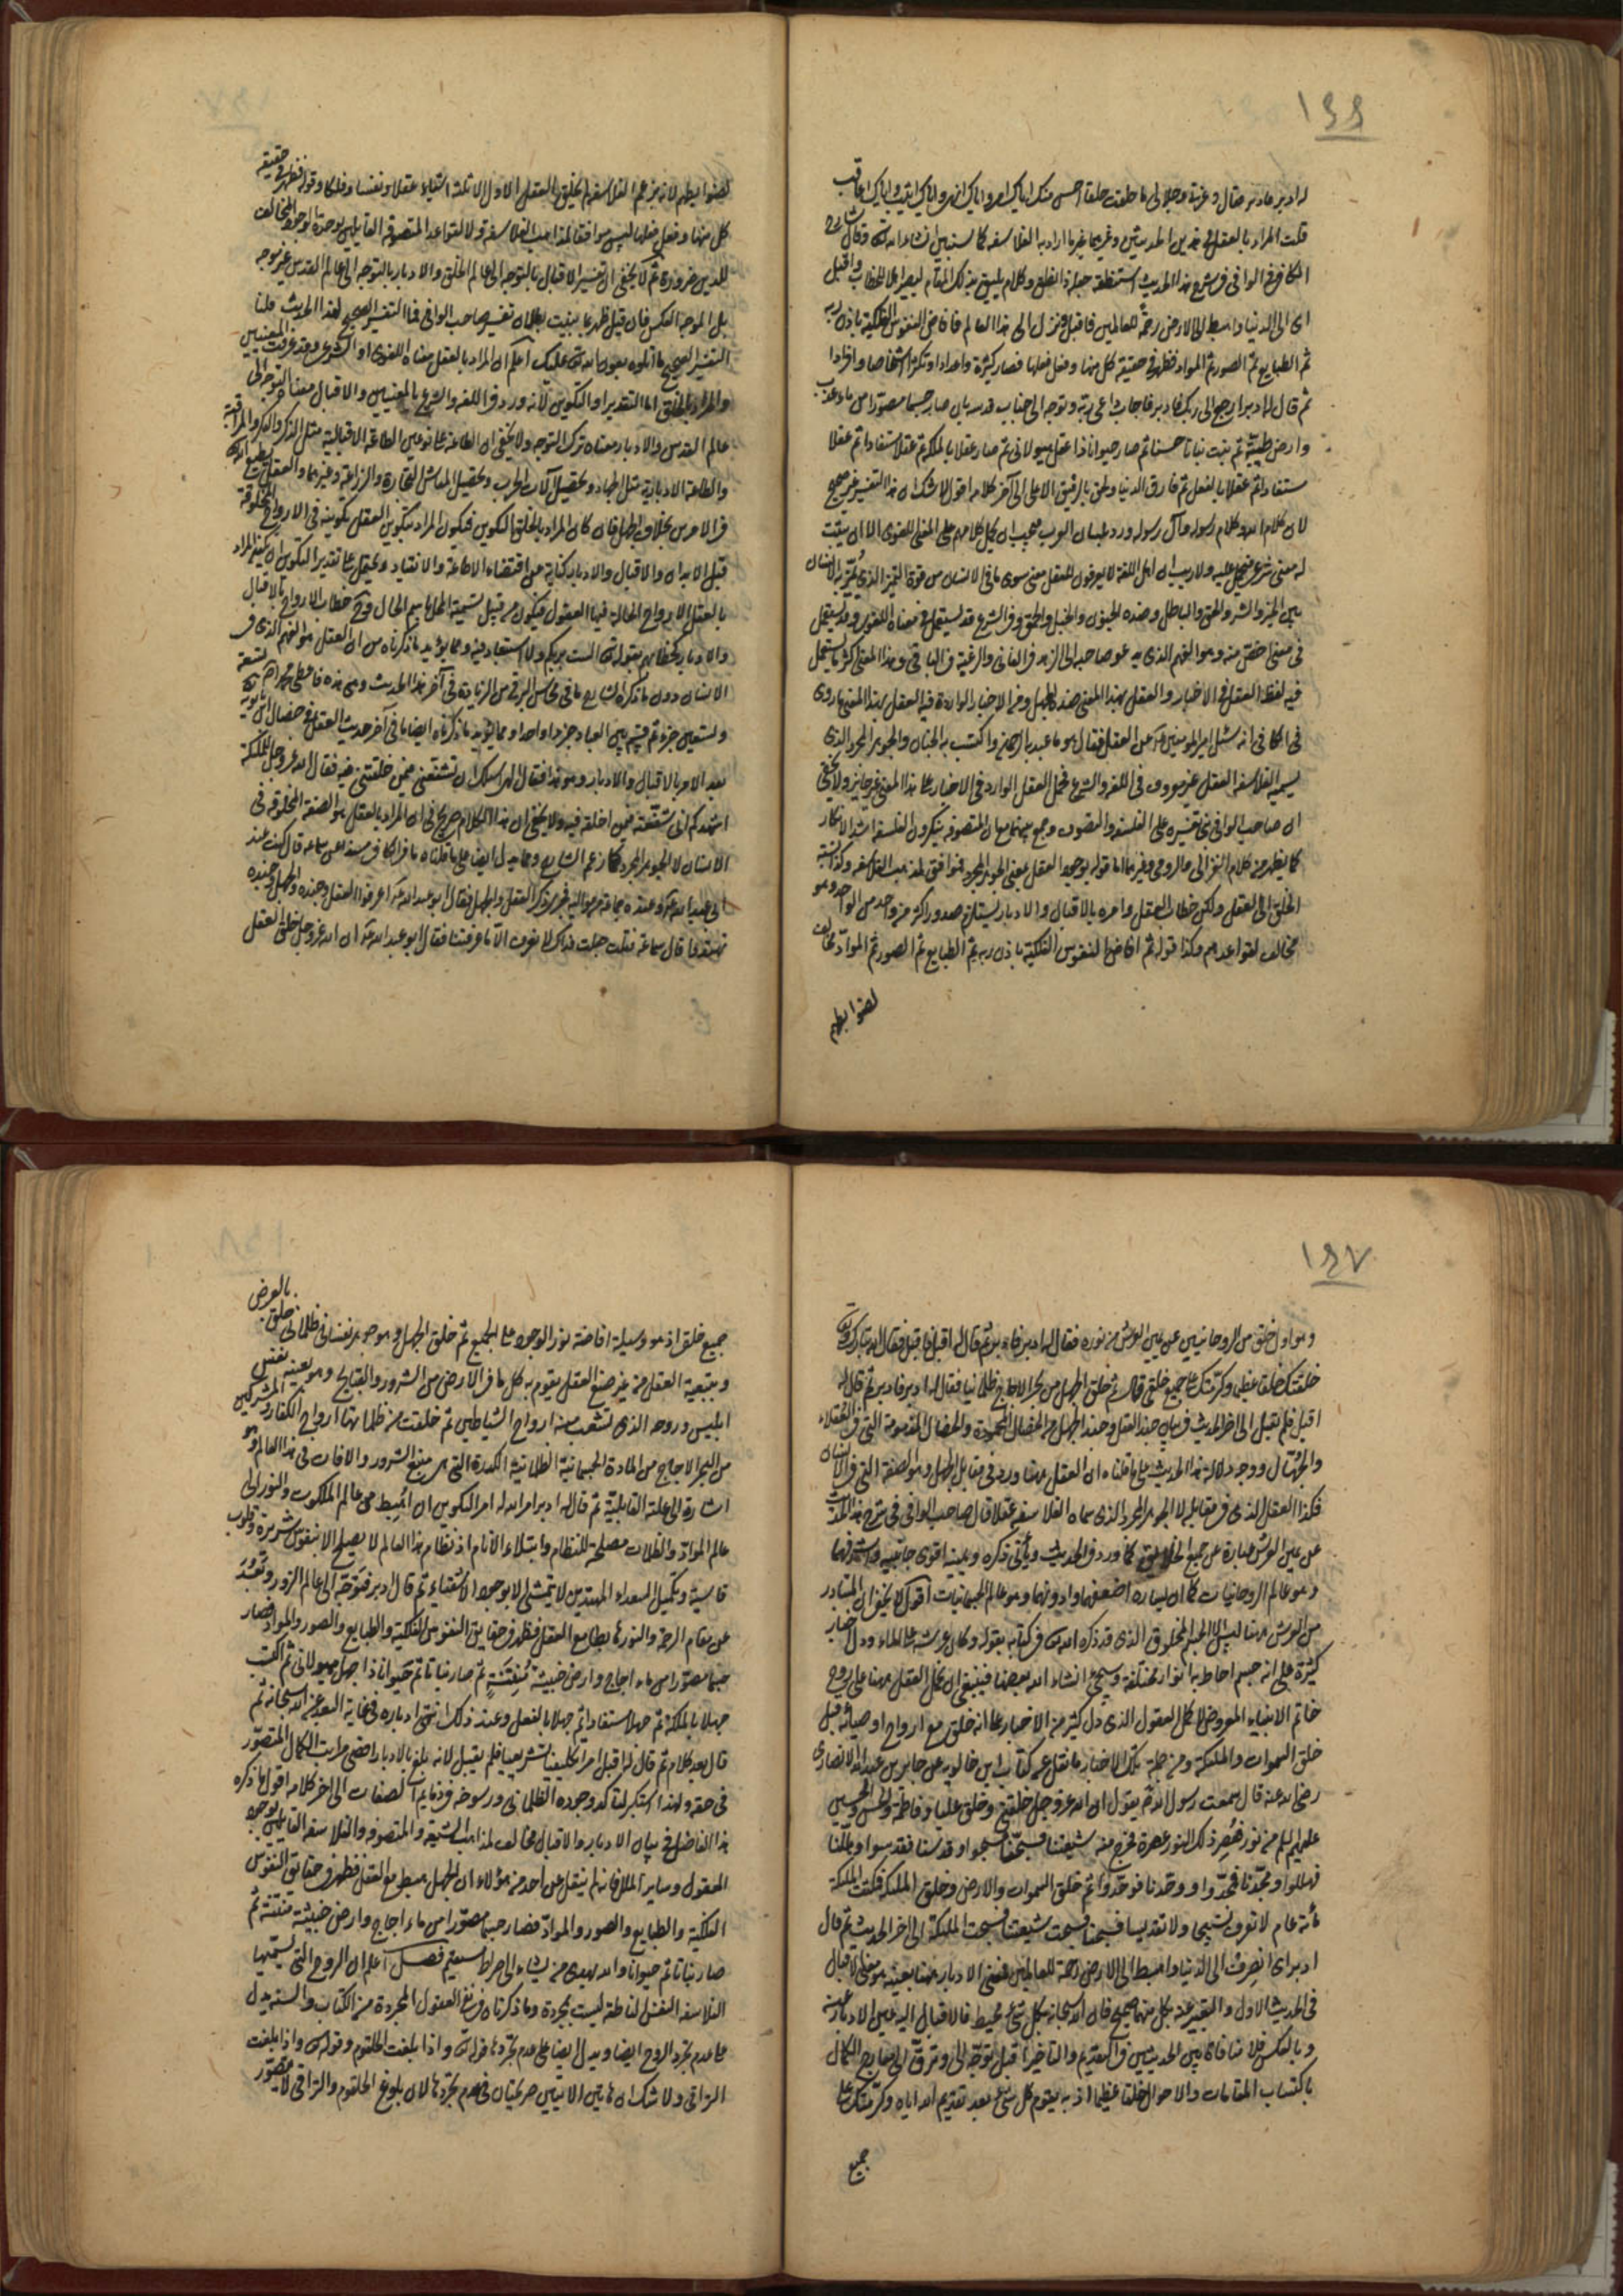 ١٤٤
له ادبر فادبر فقال وعزتي وجلالي ما خلقت خلقا احسن منك اياك امر واياك انهى واياك اثيب واياك اعاقب
قلت المراد بالعقل في هذين الحديثين وغيرهما غير ما اراد به الفلاسفة كما سنبين انشاء الله تعالى وقال شارح
الكافي في الوافي في شرح هذا الحديث استنطقه جعله ذا نطق وكلام يليق بذلك المقام ليصير اهلا للخطاب واقبل
اى الى الدنيا واهبط الى الارض رحمة للعالمين فاقبل فنزل الى هذا العالم فافاض النفوس الفلكية باذن ربه
ثم الطبايع ثم الصور ثم المواد فظهر في حقيقة كل منها وفعل فعلها فصار كثرة واعدادا وتكثر اشخاصا وافرادا
ثم قال له ادبر اى ارجع الى ربك فادبر فاجاب داعى ربه وتوجه الى جناب قدسه بان صار جسما مصورا من ماء عذب
وارض طيبة ثم نبت نباتا حسنا ثم صار حيوانا ذا عقل هيولاني ثم صار عقلا بالملكة ثم عقلا مستفادا ثم عقلا
مستفادا ثم عقلا بالفعل ثم فارق الدنيا ولحق بالرفيق الاعلى الى آخر كلامه اقول لا شك ان هذا التفسير غير صحيح
لان كلام الله وكلام رسوله وآل رسوله ورد بلسان العرب فيجب ان يحمل كلامهم على المعنى اللغوى الا ان يثبت
له معنى شرعى فيحمل عليه ولا ريب ان اهل اللغة لا يعرفون للعقل معنى سوى ما في الانسان من قوة التميز الذي يميز به الانسان
بين الخير والشر والحق والباطل وضده الجنون والخبل والحمق وفي الشرع قد يستعمل في معناه اللغوى وقد يستعمل
في معنى اخص منه وهو الفهم الذي يدعو صاحبه الى الزهد في الفاني والرغبة في الباقي وهذا المعنى اكثر ما يستعمل
فيه لفظ العقل في الاخبار والعقل بهذا المعنى ضده الجهل ومن الاخبار الواردة فيه العقل بهذا المعنى ما روى
في الكافي انه سئل امير المؤمنين ع عن العقل فقال هو ما عبد به الرحمن واكتسب به الجنان والجوهر المجرد الذي
يسميه الفلاسفة العقل غير معروف في اللغة والشرع فحمل العقل الوارد في الاخبار على هذا المعنى غير جايز ولا يخفى
ان صاحب الوافي بنى تفسيره على الفلسفة والتصوف وجمع بينهما مع ان المتصوفة ينكرون الفلسفة اشد الانكار
كما يظهر من كلام الغزالي والرومي وغيرهما اما قوله بوجود العقل بمعنى الجوهر المجرد فموافق لمذهب الفلاسفة وكذا نسبة
الخلق الى العقل ولكن خطاب العقل وامره بالاقبال والادبار يستلزم صدور اكثر من واحد من الواحد وهو
مخالف لقواعدهم وكذا قوله ثم افاض النفوس الفلكية باذن ربه ثم الطبايع ثم الصور ثم المواد مخالف
لضوابطهم
لضوابطهم لانه بزعم الفلاسفة لم يخلق العقل الاول الا ثلثة اشياء عقلا ونفسا وفلكا وقوله فظهر في حقيقة
كل منها وفعل فعلها ليس موافقا لمذاهب الفلاسفة ولا لقواعد المتصوفة القايلين بوحدة الوجود المخالف
للدين ضرورة ثم لا يخفى ان تفسير الاقبال بالتوجه الى عالم الخلق والادبار بالتوجه الى عالم القدس غير موجه
بل الموجه العكس فان قيل ظهر بما بينت بطلان تفسير صاحب الوافي فما التفسير الصحيح لهذا الحديث قلنا
التفسير الصحيح ما اتلوه بعون الله تعالى عليك اعلم ان المراد بالعقل معناه اللغوى او الشرعى وقد عرفت المعنيين
والمراد بالخلق اما التقدير او التكوين لانه ورد في اللغة والشرع بالمعنيين والاقبال معناه التوجه الى
عالم القدس والادبار معناه ترك التوجه ولا يخفى ان الطاعة على نوعين الطاعة الاقبالية مثل الذكر والفكر والمراقبة
والطاعة الادبارية مثل الجهاد وتحصيل آلات الحرب وتحصيل المعاش للتجارة والزراعة وغيرهما والعقل يطيع الله
في الامرين بخلاف الجهل فان كان المراد بالخلق التكوين فيكون المراد بتكوين العقل تكوينه في الارواح المخلوقة
قبل الابدان والاقبال والادبار كناية عن اقتضاء الاطاعة والانقياد ويحتمل على تقدير التكوين ان يكون المراد
بالعقل الارواح الحالة فيها العقول فيكون من قبيل تسمية المحل باسم الحال وصح خطاب الارواح بالاقبال
والادبار كخطابهم بقوله تعالى الست بربكم ولا استبعاد فيه ومما يؤيد ما ذكرناه من ان العقل هو الفهم الذي في
الانسان دون ما ذكره الشارح ما في محاسن البرقي من الزيادة في آخر هذا الحديث وهي هذه فاعطى محمدا ص تسعة
وتسعين جزءا ثم قسم بين العباد جزءا واحدا ومما يؤيد ما ذكرناه ايضا ما في آخر حديث العقل في خصال ابن بابويه
بعد الامر بالاقبال والادبار وهو هذا فقال الهى اسئلك ان تشفعني فيمن خلقتني فيه فقال الله عز وجل لملائكته
اشهدكم اني شفعته فيمن اخلقه فيه ولا يخفى ان هذا الكلام صريح في ان المراد بالعقل هو الصفة المخلوقة في
الانسان لا الجوهر المجرد كما زعم الشارح ومما يدل ايضا على ما قلناه ما في الكافي مسندا عن سماعة قال كنت عند
ابي عبد الله ع وعنده جماعة من مواليه فجرى ذكر العقل والجهل فقال ابو عبد الله ع اعرفوا العقل وجنده والجهل وجنده
تهتدوا قال سماعة فقلت جعلت فداك لا نعرف الا ما عرفتنا فقال ابو عبد الله ع ان الله عز وجل خلق العقل
١٤٧
وهو اول خلق من الروحانيين عن يمين العرش من نوره فقال له ادبر فادبر ثم قال له اقبل فاقبل فقال الله تبارك وتعالى
خلقتك خلقا عظيما وكرمتك على جميع خلقي قال ثم خلق الجهل من البحر الاجاج ظلمانيا فقال له ادبر فادبر ثم قال له
اقبل فلم يقبل الى اخر الحديث في بيان جند العقل وجند الجهل من الخصال المحمودة والخصال المذمومة التي في العقلاء
والجهال ووجه دلالة هذا الحديث على ما قلناه ان العقل ههنا ورد في مقابل الجهل وهو الصفة التي في الانسان
فكذا العقل الذي في مقابله لا الجوهر المجرد الذي سماه الفلاسفة عقلا قال صاحب الوافي في شرح هذا الحديث
عن يمين العرش عبارة عن جميع الخلايق كما ورد في الحديث ويأتي ذكره ويمينه اقوى جانبيه واشرفهما
وهو عالم الروحانيات كما ان يساره اضعفهما وادونهما وهو عالم الجسمانيات اقول لا يخفى ان المتبادر
من العرش ههنا ليس الا الجسم المخلوق الذي قد ذكره الله تعالى في كتابه بقوله وكان عرشه على الماء ودل اخبار
كثيرة على انه جسم احاط به انوار مختلفة وسيجئ انشاء الله بعضها فينبغي ان يحمل العقل ههنا على روح
خاتم الانبياء المعروض لاكمل العقول الذي دل كثير من الاخبار على انه خلق مع ارواح اوصيائه قبل
خلق السموات والملئكة ومن جملة تلك الاخبار ما نقل عن كتاب ابن خالويه عن جابر بن عبد الله الانصارى
رضى الله عنه قال سمعت رسول الله ص يقول ان الله عز وجل خلقني وخلق عليا وفاطمة والحسن والحسين
عليهم السلم من نور فعصر ذلك النور عصرة فخرج منه شيعتنا فسبحنا فسبحوا وقدسنا فقدسوا وهللنا
فهللوا ومجدنا فمجدوا ووحدنا فوحدوا ثم خلق السموات والارض وخلق الملئكة فمكثت الملئكة
مأة عام لا تعرف تسبيحا ولا تقديسا فسبحنا فسبحت شيعتنا فسبحت الملئكة الى اخر الحديث ثم قال
ادبر اى انصرف الى الدنيا واهبط الى الارض رحمة للعالمين فمعنى الادبار ههنا بعينه هو معنى الاقبال
في الحديث الاول والتعبير عنه بكل منهما صحيح فان الله سبحانه بكل شئ محيط فالاقبال اليه عين الادبار عنه
وبالعكس فلا منافاة بين الحديثين في التقديم والتاخير اقبل توجه الى وترق الى معارج الكمال
باكتساب المقامات والاحوال خلقا عظيما اذ به يتقوم كل شئ بعد تقويم الله اياه وكرمتك على
جميع
جميع خلقي اذ هو وسيلة افاضة نور الوجود على الجميع ثم خلق الجهل وهو جوهر نفساني ظلماني خلق بالعرض
وبتبعية العقل من غير صنع العقل يتقوم به كل ما في الارض من الشرور والقبايح وهو بعينه نفس
ابليس وروحه الذي تشعبت منه ارواح الشياطين ثم خلقت من ظلماتها ارواح الكفار والمشركين
من البحر الاجاج من المادة الجسمانية الظلمانية الكدرة التي هى منبع الشرور والافات في هذا العالم وهو
اشارة الى علته القابلية ثم قال له ادبر امر الله له امر التكوين ان اهبط من عالم الملكوت والنور الى
عالم المواد والظلمات مصلحة للنظام وابتلاء الانام اذ نظام هذا العالم لا يصلح الا بنفوس شريرة وقلوب
قاسية وتكميل السعداء المهتدين لا يتمشى الا بوجود الاشقياء ثم قال دبر فتوجه الى عالم الزور وتبعد
عن مقام الرحمة والنور هابطا مع العقل فظهر في حقايق النفوس الفلكية والطبايع والصور والمواد فصار
جسما مصورا من ماء اجاج وارض خبيثة منتنة ثم صار نباتا ثم حيوانا ذا جهل هيولاني ثم اكتسب
جهلا بالملكة ثم جهلا مستفادا ثم جهلا بالفعل وعند ذلك انتهى ادباره في غاية البعد عن الله سبحانه ثم
قال بعد كلام ثم قال له اقبل امرا تكليفيا تشريعيا فلم يقبل لانه بلغ بالادبار اقصى مراتب الكمال المتصور
في حقه ولهذا استكبر لتأكد وجوده الظلماني ورسوخه في ذمايم الصفات الى اخر كلامه اقول ما ذكره
هذا الفاضل في بيان الادبار والاقبال مخالف لمذاهب الشيعة والمتصوفة والفلاسفة القايلين بوجود
العقول وساير الملل فانه لم ينقل عن احد من هؤلاء ان الجهل هبط مع العقل فظهر في حقايق النفوس
الفلكية والطبايع والصور والمواد فصار جسما مصورا من ماء اجاج وارض خبيثة منتنة ثم
صار نباتا ثم حيوانا والله يهدى من يشاء الى صراط مستقيم فصل اعلم ان الروح التي تسميها
الفلاسفة النفس الناطقة ليست بمجردة وما ذكرناه في نفي العقول المجردة من الكتاب والسنة يدل
على عدم تجرد الروح ايضا ويدل ايضا على عدم تجردها قوله تعالى واذا بلغت الحلقوم وقوله تعالى واذا بلغت
التراقي ولا شك ان هاتين الايتين صريحتان في عدم تجردها لان بلوغ الحلقوم والتراقي لا يتصور